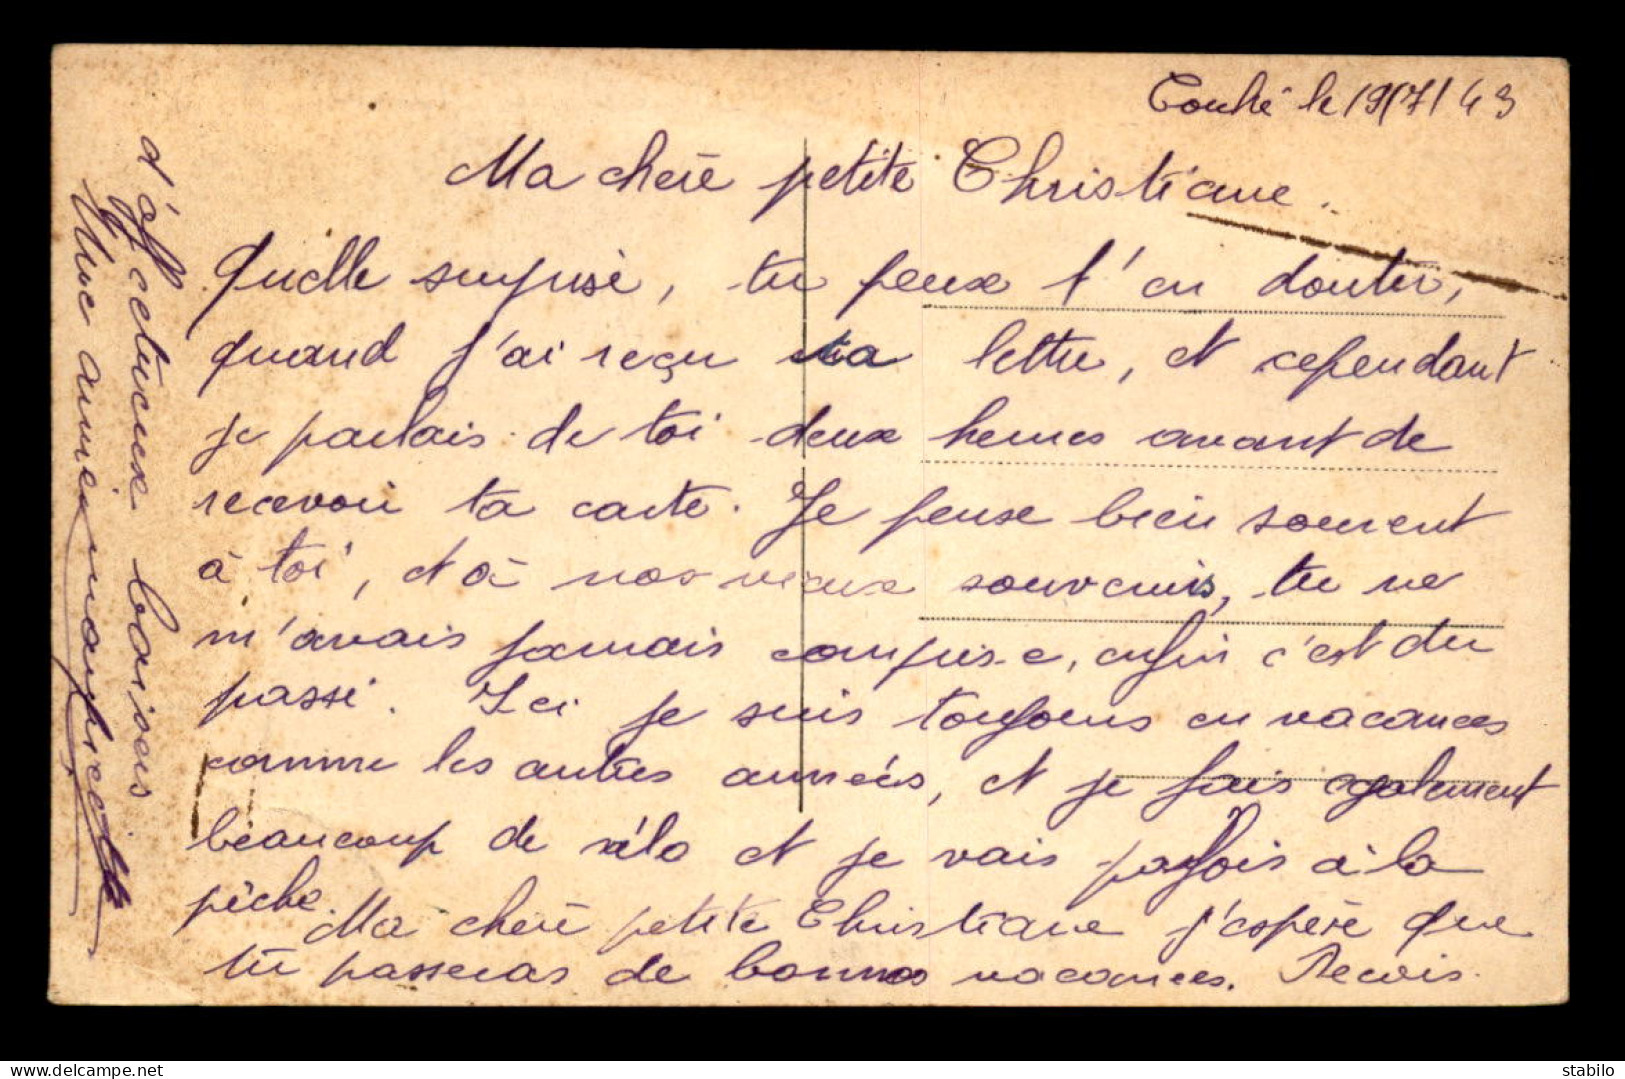 le 19/7/43
Ma chère petite Christiane.
Quelle surprise, tu peux t'en douter,
quand j'ai reçu ta lettre, et cependant
je parlais de toi deux heures avant de
recevoir ta carte. Je pense bien souvent
à toi, et à nos vieux souvenirs, tu ne
m'avais jamais comprise, enfin c'est du
passé. Ici je suis toujours en vacances
comme les autres années, et je fais également
beaucoup de vélo et je vais parfois à la
pêche. Ma chère petite Christiane j'espère que
tu passeras de bonnes vacances. Recois
d'affectueux baisers
Une amie
www.delcampe.net
stabilo